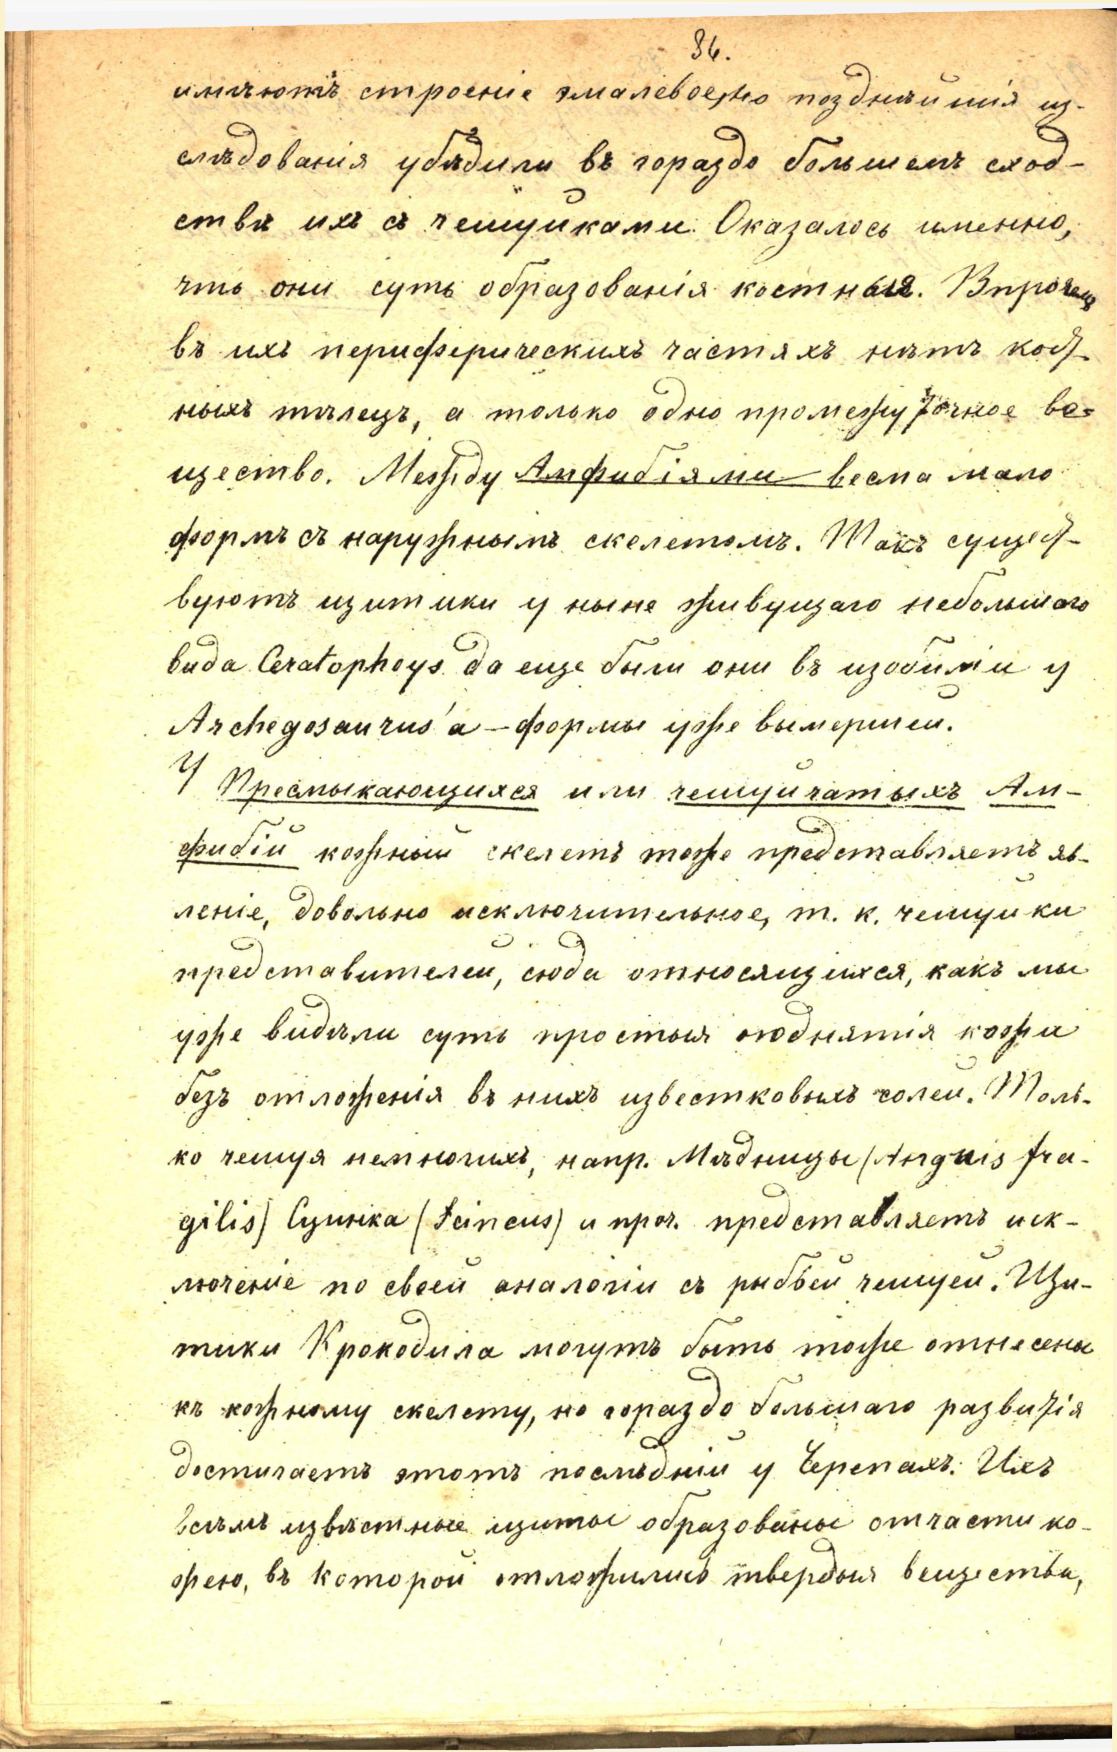 36.
имѣютъ строеніе эмалевое, но позднѣйшія из-
слѣдованія убѣдили въ гораздо большемъ сход-
ствѣ ихъ съ чешуйками. Оказалось именно,
что они суть образованія костныя. Впрочемъ
въ ихъ периферическихъ частяхъ нѣтъ кост-
ныхъ тѣлецъ, а только одно промежуточное ве-
щество. Между Амфибіями весма мало
формъ съ наружнымъ скелетомъ. Такъ сущест-
вуютъ щитики у ныне живущаго небольшого
вида Ceratophrys да еще были они въ изобиліи у
Archegosaurus'а – формы уже вымершей.
У Пресмыкающихся или чешуйчатыхъ Ам-
фибій кожный скелетъ тоже представляетъ яв-
леніе, довольно исключительное, т. к. чешуйки
представителей, сюда относящихся, какъ мы
уже видѣли суть простыя поднятія кожи
безъ отложенія въ нихъ известковыхъ солей. Толь-
ко чешуя немногихъ, напр. Мѣдницы (Anguis fra-
gilis) Сцинка (Scincus) и проч. представляетъ иск-
люченіе по своей аналогіи съ рыбьей чешуей. Щи-
тики Крокодила могутъ быть тоже отнесены
къ кожному скелету, но гораздо большаго развитія
достигаетъ этотъ послѣдній у Черепахъ. Ихъ
всѣмъ извѣстные щиты образованы отчасти ко-
жею, въ которой отложились твердыя вещества,